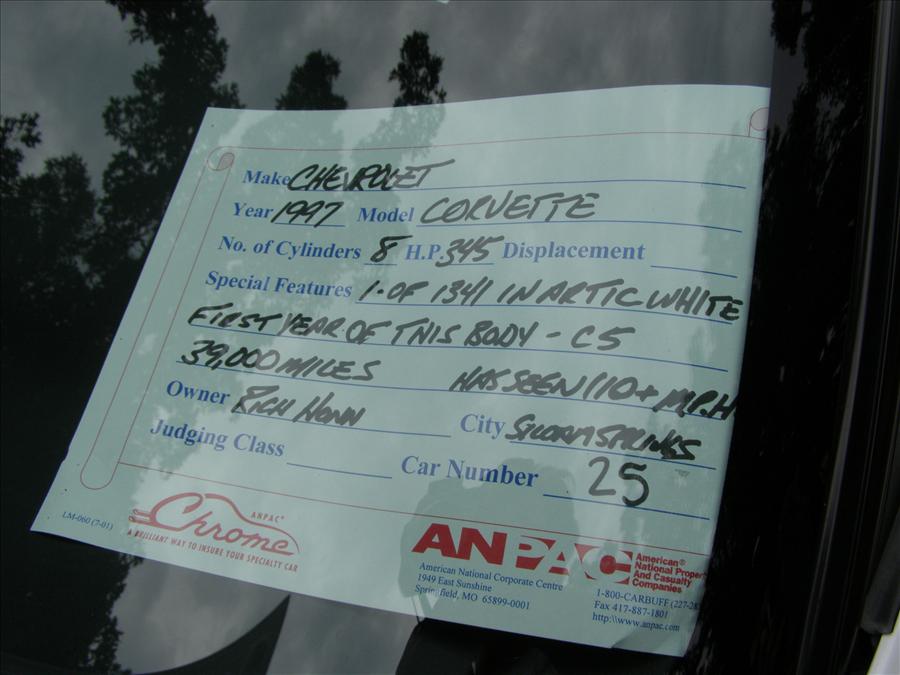 Make CHEVROLET
Year 1997 Model CORVETTE
No. of Cylinders 8 H.P. 345 Displacement
Special Features 1-OF 1341 IN ARTIC WHITE
FIRST YEAR OF THIS BODY - C5
39,000 MILES HAS SEEN 110+ M.P.H
Owner RICH HONN City SILOAM SPRINGS
Judging Class Car Number 25
LM-060 (7-01)
ANPAC®
Chrome
A BRILLIANT WAY TO INSURE YOUR SPECIALTY CAR
ANPAC
American®
National Proper
And Casualty
Companies
American National Corporate Centre
1949 East Sunshine
Springfield, MO 65899-0001
1-800-CARBUFF (227-28
Fax 417-887-1801
http:\\www.anpac.com